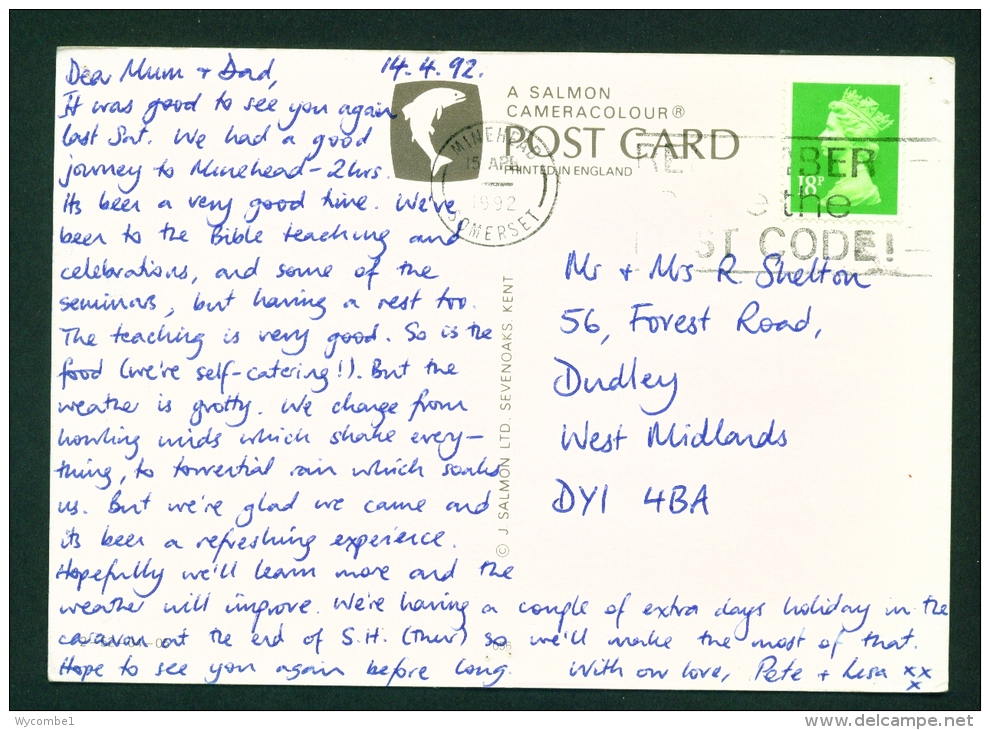 Dear Mum + Dad,
14.4.92.
It was good to see you again
last Sat. We had a good
journey to Minehead - 2hrs.
Its been a very good time. We've
been to the Bible teaching and
celebrations, and some of the
seminars, but having a rest too.
The teaching is very good. So is the
food (we're self-catering!). But the
weather is grotty. We change from
howling winds which shake every-
thing, to torrential rain which soaks
us. But we're glad we came and
its been a refreshing experience.
Hopefully we'll learn more and the
weather will improve. We're having a couple of extra days holiday in the
caravan at the end of S.H. (Thur) so we'll make the most of that.
Hope to see you again before long. With our love, Pete + Lisa xx
x
A SALMON
CAMERACOLOUR®
POST CARD
PRINTED IN ENGLAND
MINEHEAD
15 APR
1992
SOMERSET
18P
BER
the
ST CODE!
© J SALMON LTD. SEVENOAKS. KENT
Mr + Mrs R. Shelton
56, Forest Road,
Dudley
West Midlands
DY1 4BA
Wycombe1
www.delcampe.net